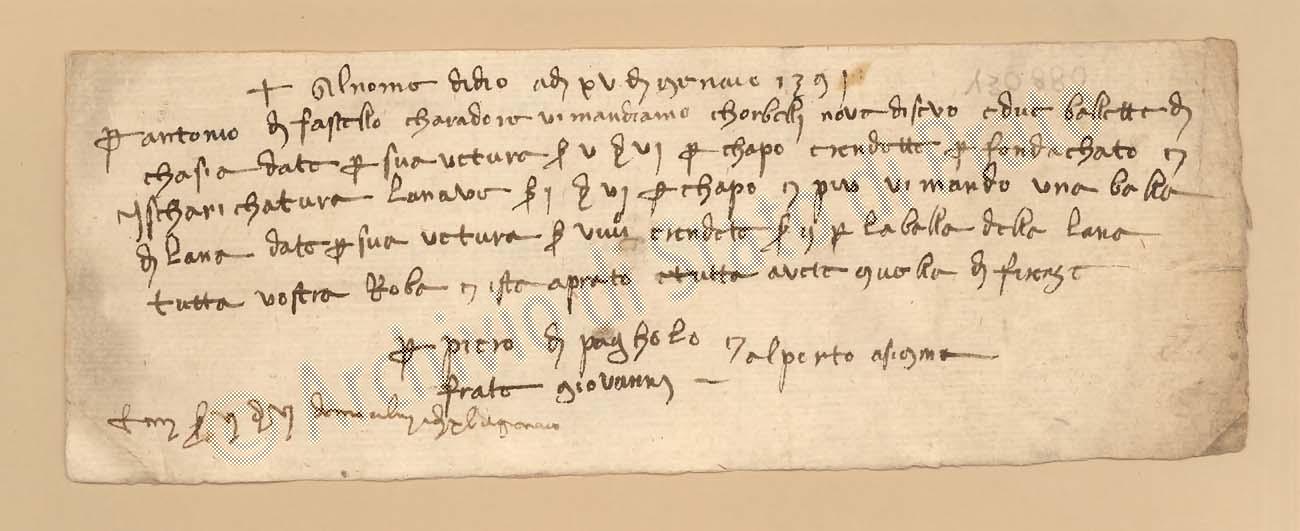 + Al nome didio adi xv di gienaio 1391
Per antonio di fastello charadore vi mandiamo chorbelli nove disevo e due ballette di
chasia date per sua vetura s v d vi per chapo e rendette per fondachato e
ischarichatura lanave s i d vi per chapo e piu vi mando una balla
di lana date per sua vetura s e rendete s per la balla della lana
tutta vostra Roba e ista aprato etutta avete quella di firenze
per piero di pagholo e alperto
frate giovanni
© Archivio di Stato di Prato